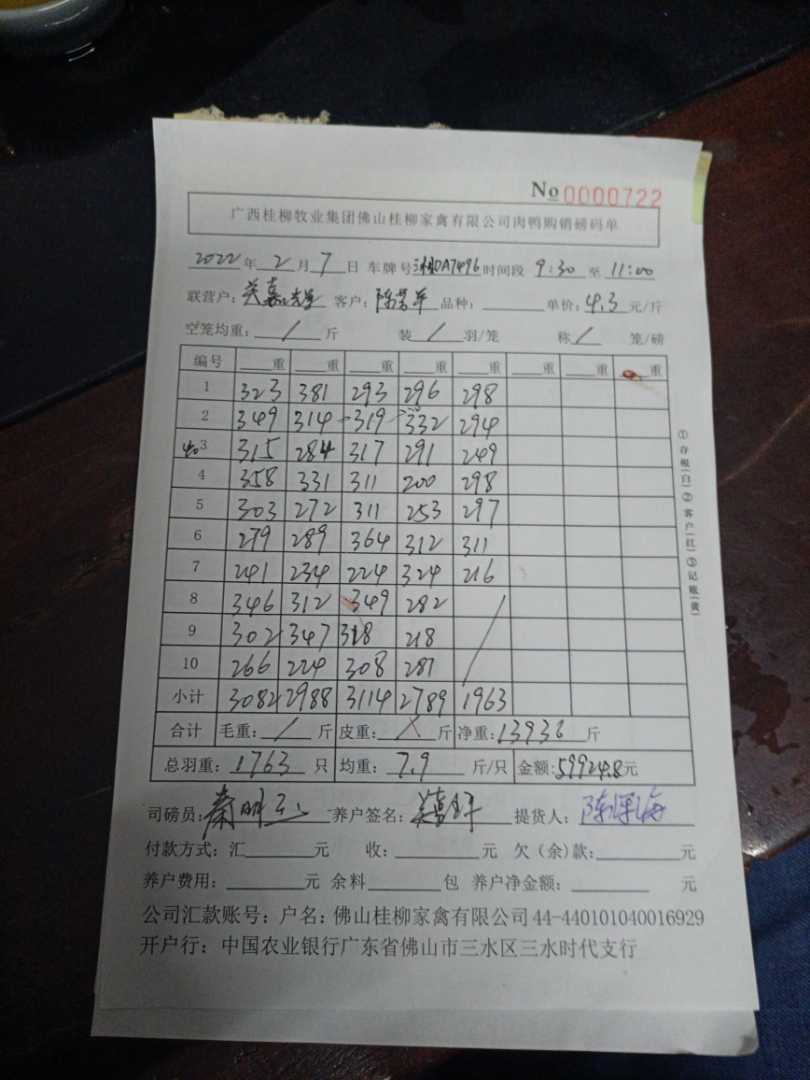 No 0000722
广西桂柳牧业集团佛山桂柳家禽有限公司肉鸭购销磅码单
2022 年 2 月 7 日 车牌号 DA7496 时间段 9:30 至 11:00
联营户: 客户: 品种: 单价: 4.3 元/斤
空笼均重: / 斤 装 / 羽/笼 称 / 笼/磅
编号 重 重 重 重 重 重 重 重
1 323 381 293 296 298
2 349 314 319 332 294
3 315 284 317 291 249
4 358 331 311 200 298
5 303 272 311 253 297
6 279 289 364 312 311
7 241 234 224 324 216
8 346 312 349 282
9 302 347 318 218
10 266 224 308 281
小计 3082 2988 3114 2789 1963
合计 毛重: / 斤 皮重: 斤 净重: 13936 斤
总羽重: 1763 只 均重: 7.9 斤/只 金额: 59924.8 元
司磅员: 养户签名: 提货人:
付款方式: 汇 元 收: 元 欠(余)款: 元
养户费用: 元 余料 包 养户净金额: 元
公司汇款账号: 户名: 佛山桂柳家禽有限公司 44-440101040016929
开户行: 中国农业银行广东省佛山市三水区三水时代支行
①存根(白)②客户(红)③记账(黄)